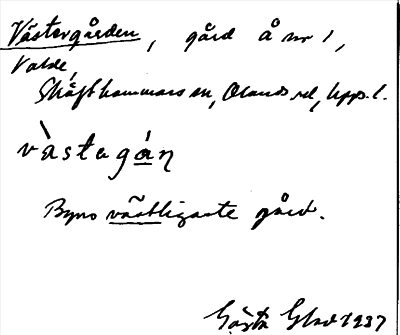 Västergården, gård å nr 1,
Valde,
Skäfthammars sn, Olands hd, Upps. l.
va̍stagá̱ṇ
Byns västligaste gård.
Gösta 1937